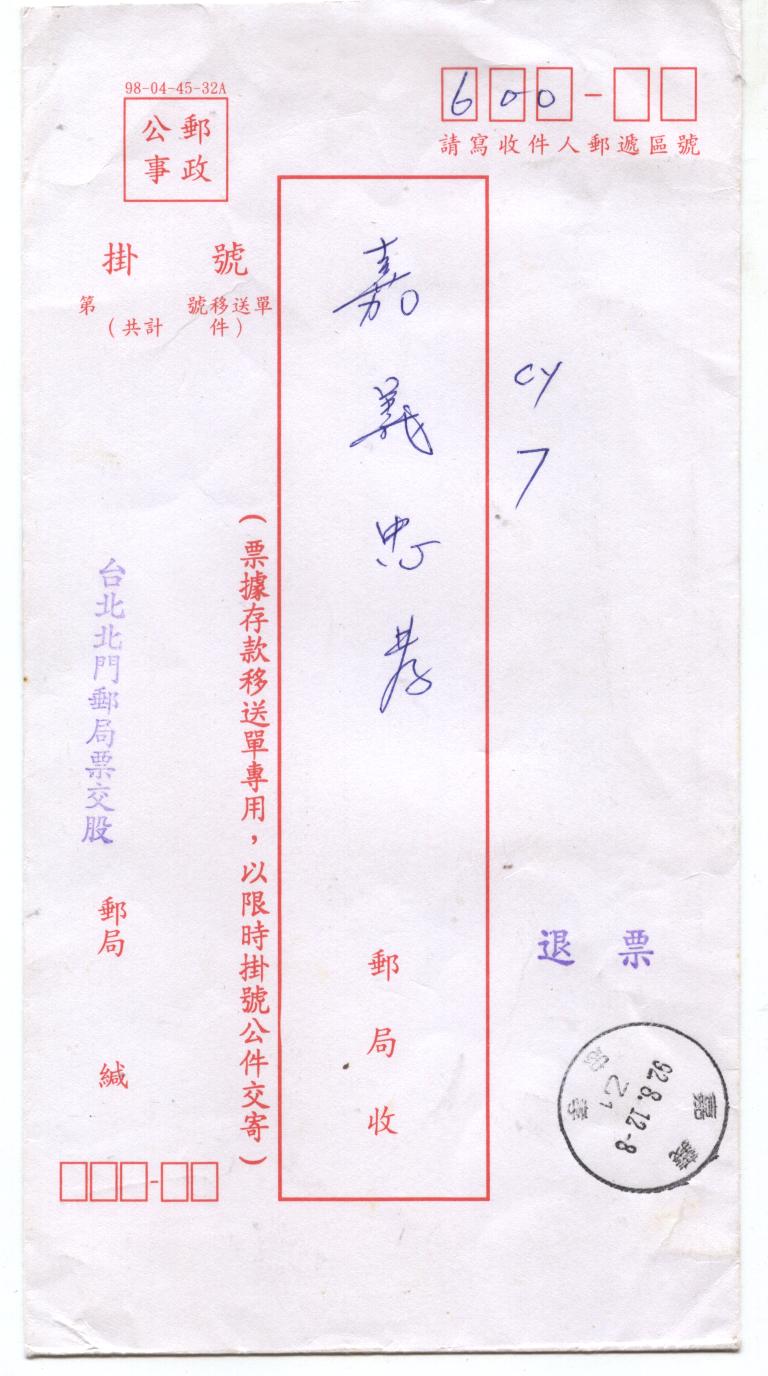 98-04-45-32A
郵政
公事
600
請寫收件人郵遞區號
掛號
第 號移送單
(共計 件)
cy
7
退票
嘉義忠孝
郵局收
(票據存款移送單專用,以限時掛號公件交寄)
台北北門郵局票交股
郵局
緘
嘉義
92.8.12-8
乙1
忠孝